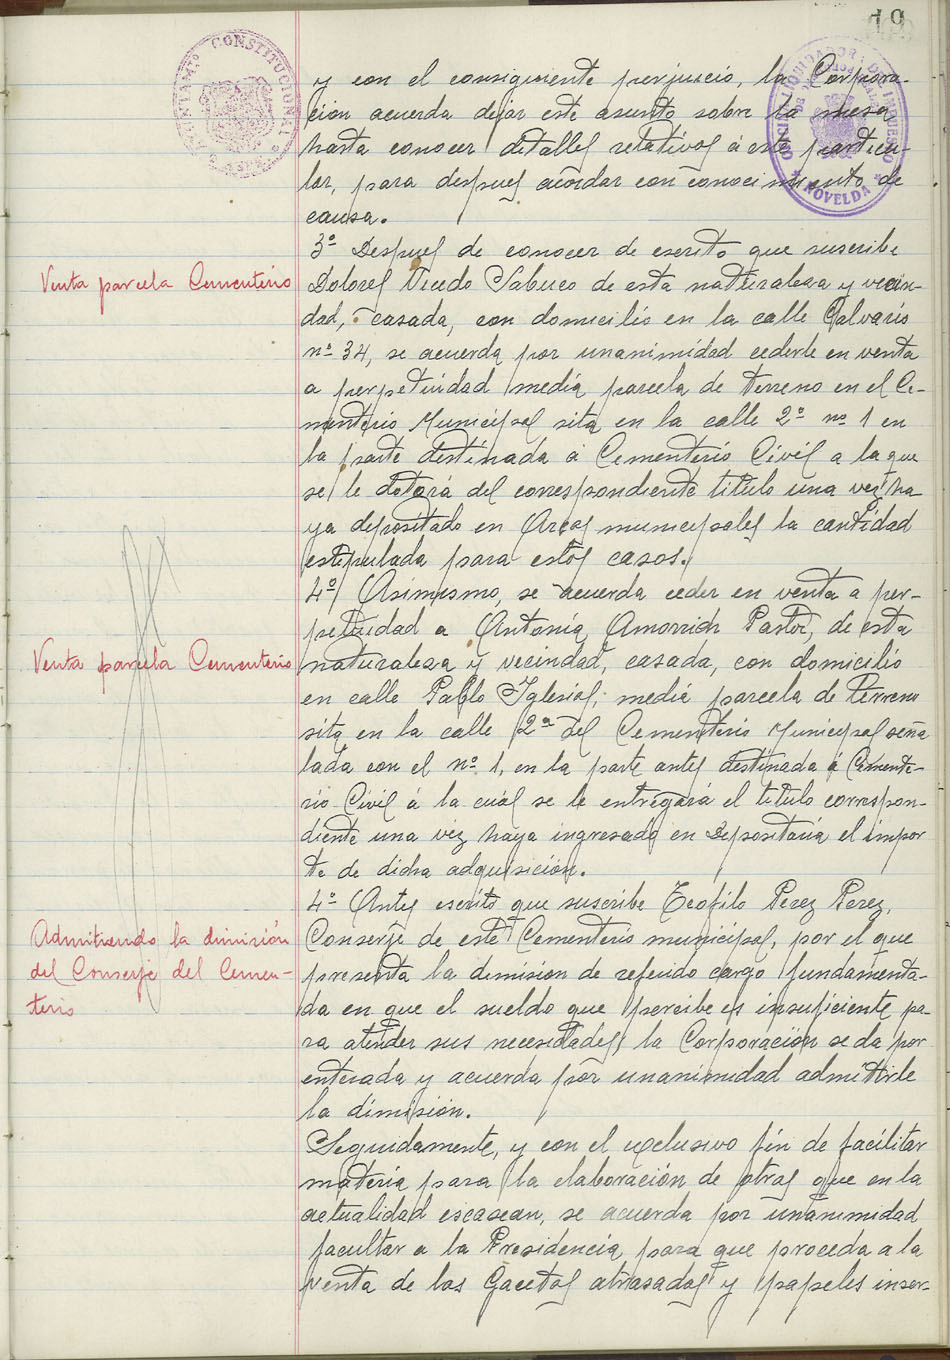 19
AYUNTAMTº CONSTITUCIONAL
ASPE
OFICINA LIQUIDADORA DEL IMPUESTO
NOVELDA
y con el consiguiente perjuicio, la Corpora-
ción acuerda dejar este asunto sobre la mesa
hasta conocer detalles relativos á este particu-
lar, para despues acordar con conocimiento de
causa.
3º Despues de conocer de escrito que suscribe
Venta parcela Cementerio
Dolores Vicedo Sabuco de esta naturaleza y vecin-
dad, casada, con domicilio en la calle Calvario
nº 34, se acuerda por unanimidad cederle en venta
a perpetuidad media parcela de terreno en el Ce-
menterio Municipal sita en la calle 2ª nº 1 en
la parte destinada a Cementerio Civil a la que
se le dotará del correspondiente titulo una vez ha
ya depositado en Arcas municipales la cantidad
estipulada para estos casos.
4º Asimismo, se acuerda ceder en venta a per-
petuidad a Antonia Amorrich Pastor, de esta
Venta parcela Cementerio
naturaleza y vecindad, casada, con domicilio
en calle Pablo Iglesias, media parcela de terreno
sita en la calle 2ª del Cementerio Municipal seña
lada con el nº 1, en la parte antes destinada á Cemente-
rio Civil á la cuál se le entregará el titulo correspon-
diente una vez haya ingresado en Depositaría el impor
te de dicha adquisición.
4º Antes escrito que suscribe Teofilo Perez Perez,
Admitiendo la dimisión
del Conserje del Cemen-
terio
Conserje de este Cementerio municipal, por el que
presenta la demisión de referido cargo fundamenta-
da en que el sueldo que percibe es insuficiente pa-
ra atender sus necesidades la Corporación se da por
enterada y acuerda por unanimidad admitirle
la dimisión.
Seguidamente, y con el exclusivo fin de facilitar
materia para la elaboración de otras que en la
actualidad escasean, se acuerda por unanimidad
facultar a la Presidencia para que proceda a la
venta de las Gacetas atrasadas y papeles inser-